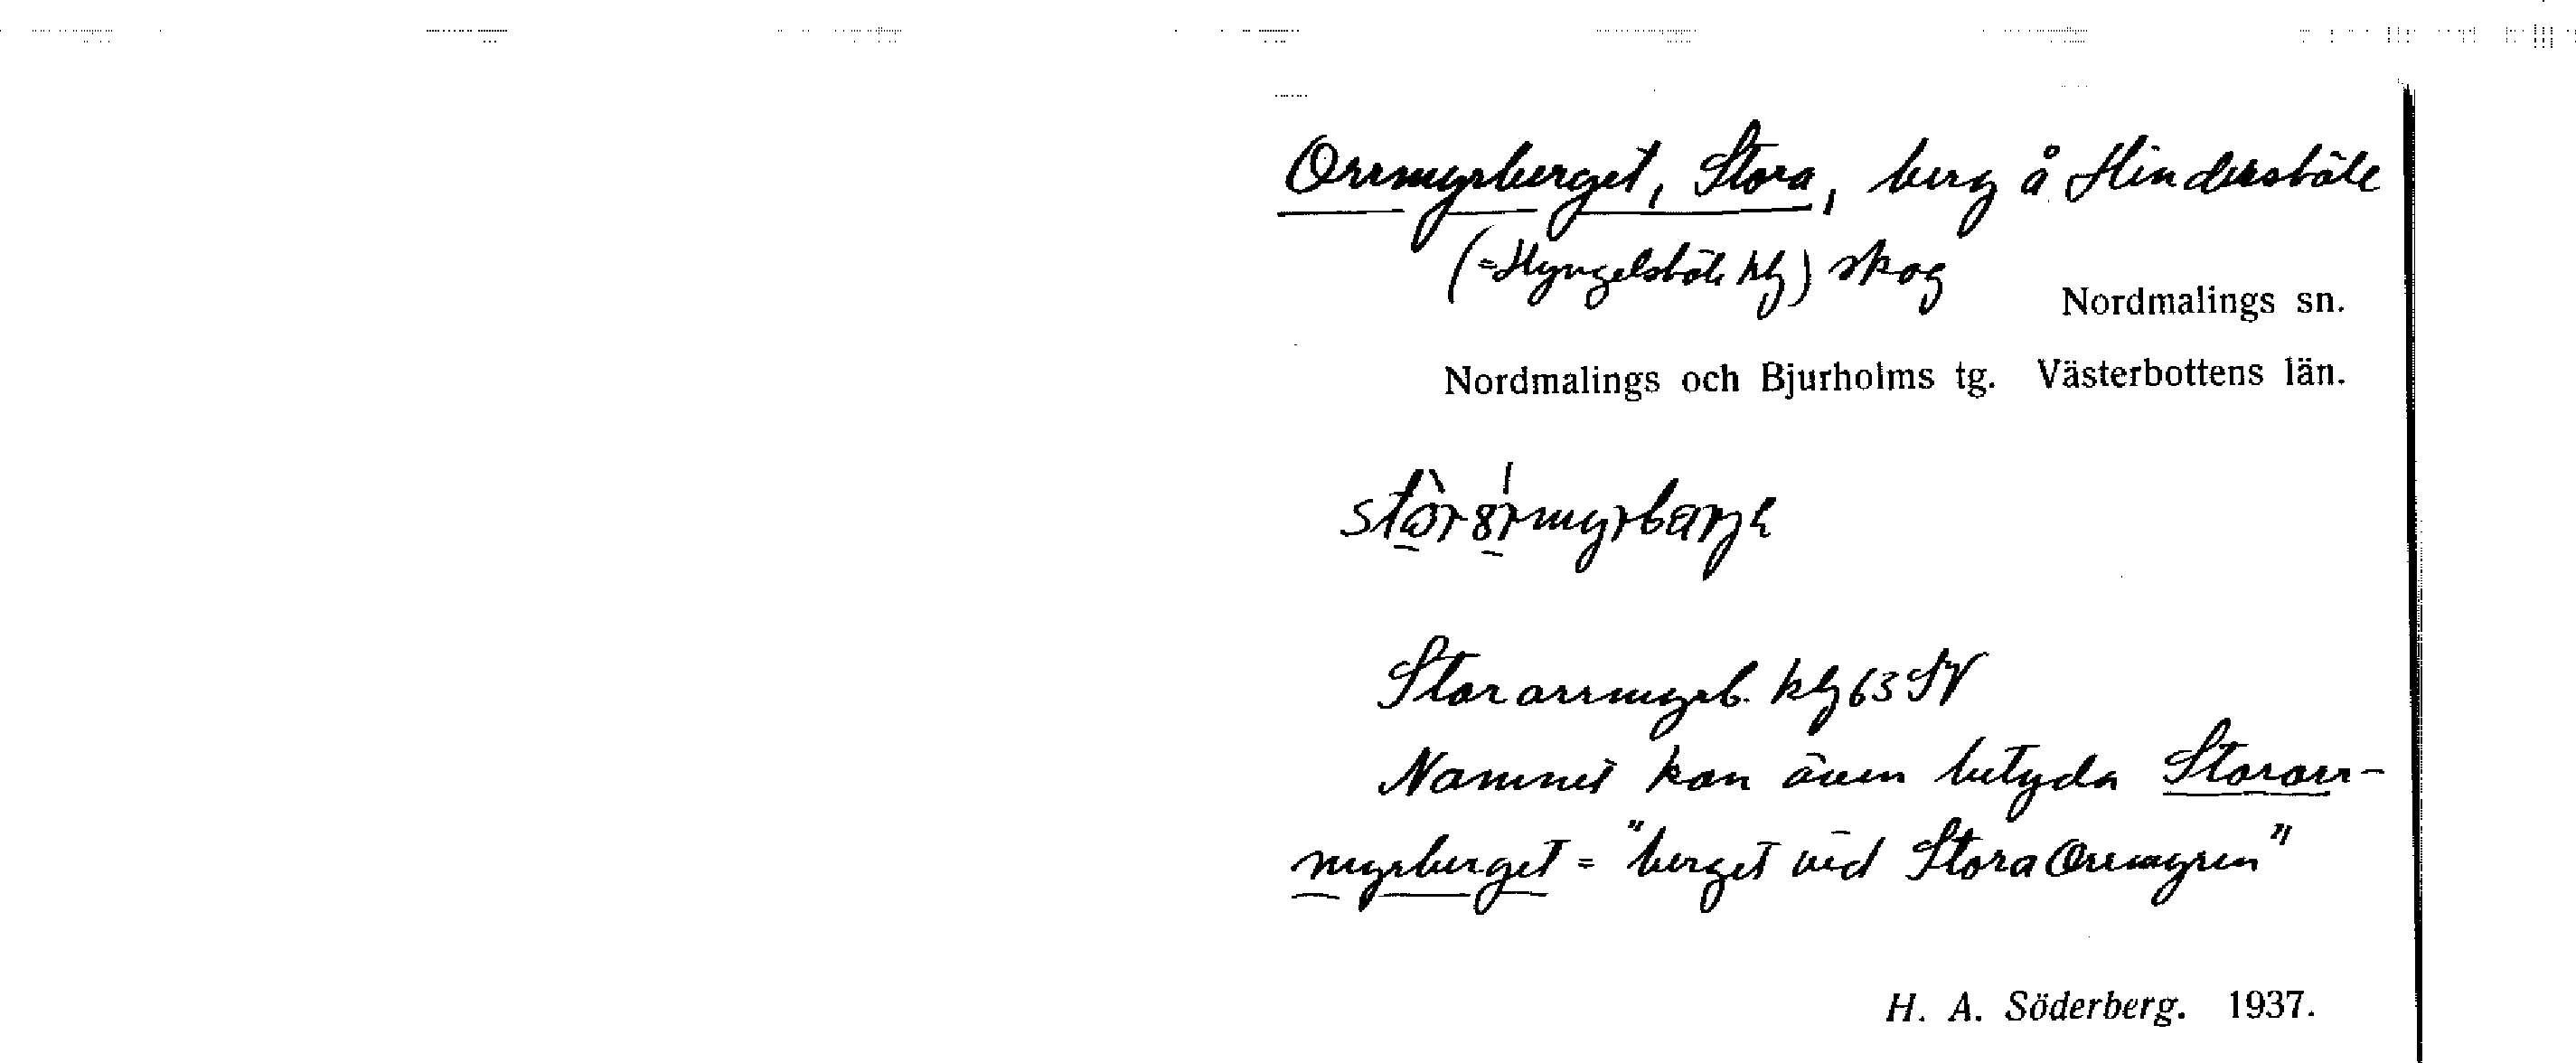 Orrmyrberget, Stora, berg å Hindersböle
(=Hyngelsböle kbl) skog
Nordmalings sn.
Nordmalings och Bjurholms tg. Västerbottens län.
Stororrmyrb. kbl 63 SV
Namnet kan även betyda Stororr-
myrberget = "berget vid Stora Orrmyren"
H. A. Söderberg. 1937.